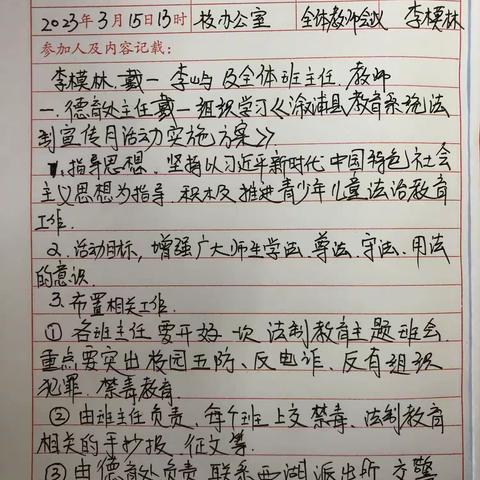 2023年3月15日13时 校办公室 全体教师会议 李模林
参加人及内容记载：
李模林.戴一 李屿及全体班主任.教师
一.德育处主任戴一组织学习《溆浦县教育系统法
制宣传月活动实施方案》.
1.指导思想.坚持以习近平新时代中国特色社会
主义思想为指导.积极推进青少年儿童法治教育
工作.
2.活动目标,增强广大师生学法.尊法.守法.用法
的意识.
3.布置相关工作.
①各班主任要开好一次法制教育主题班会.
重点要突出校园五防、反电诈、反有组织
犯罪.禁毒教育.
②由班主任负责,每个班上交禁毒、法制教育
相关的手抄报.征文等.
③由德育处负责联系西湖派出所.交警